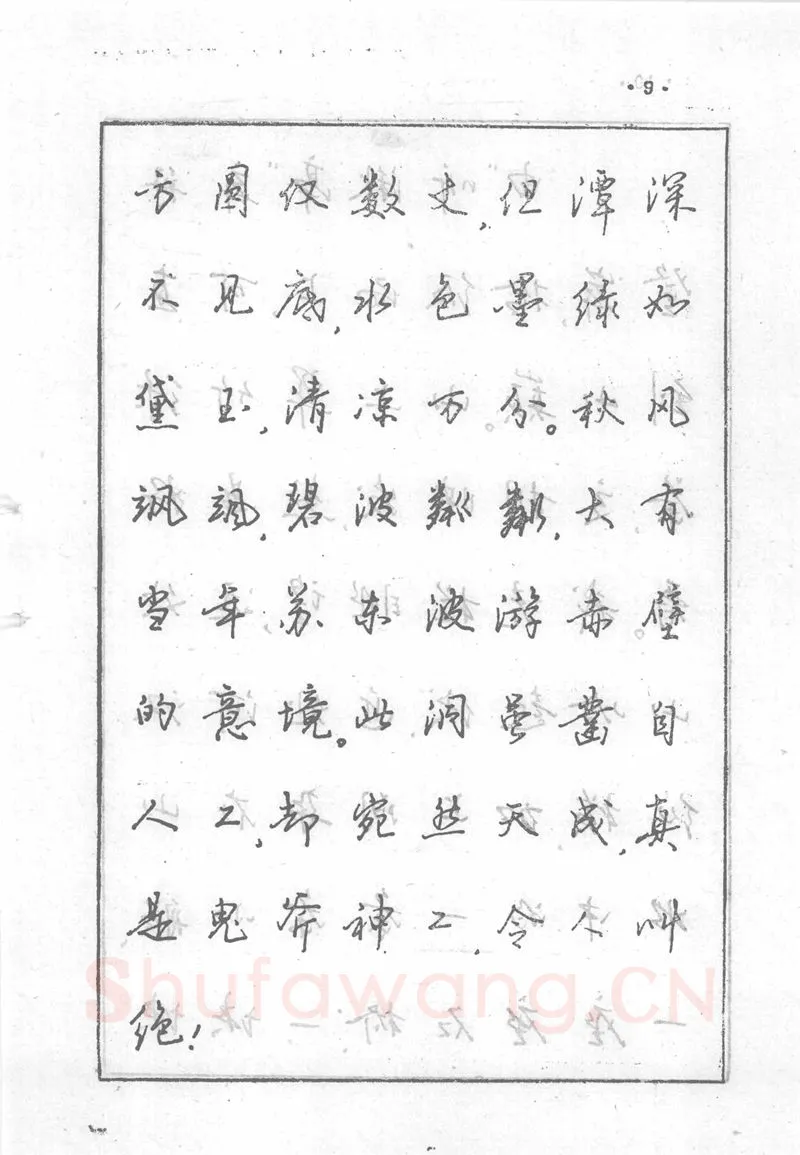 ·9·
方圆仅数丈,但潭深
不见底,水色墨绿如
黛玉,清凉万分。秋风
飒飒,碧波粼粼,大有
当年苏东波游赤壁
的意境。此洞虽凿自
人工,却宛然天成,真
是鬼斧神工,令人叫
绝!
Shufawang.CN